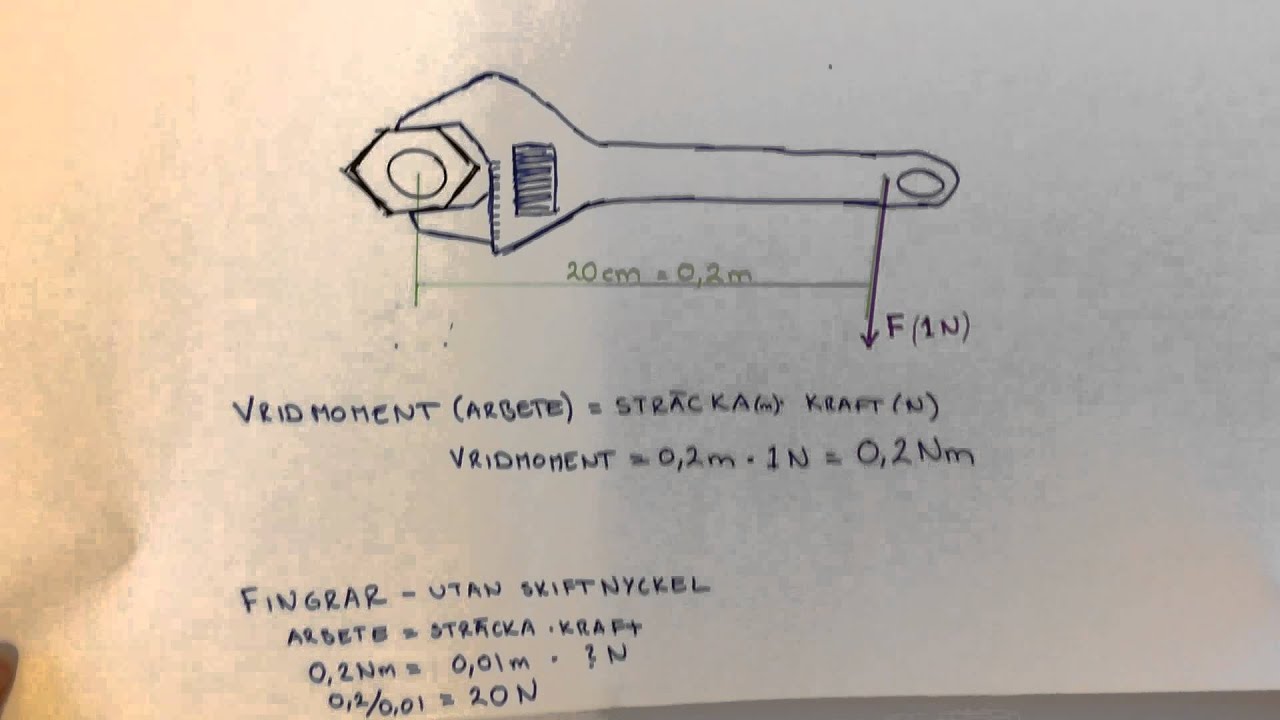 20cm = 0,2m
F(1N)
VRIDMOMENT (ARBETE) = STRÄCKA(m)· KRAFT(N)
VRIDMOMENT = 0,2m · 1N = 0,2Nm
FINGRAR - UTAN SKIFTNYCKEL
ARBETE = STRÄCKA · KRAFT
0,2Nm = 0,01m · ? N
0,2/0,01 = 20N